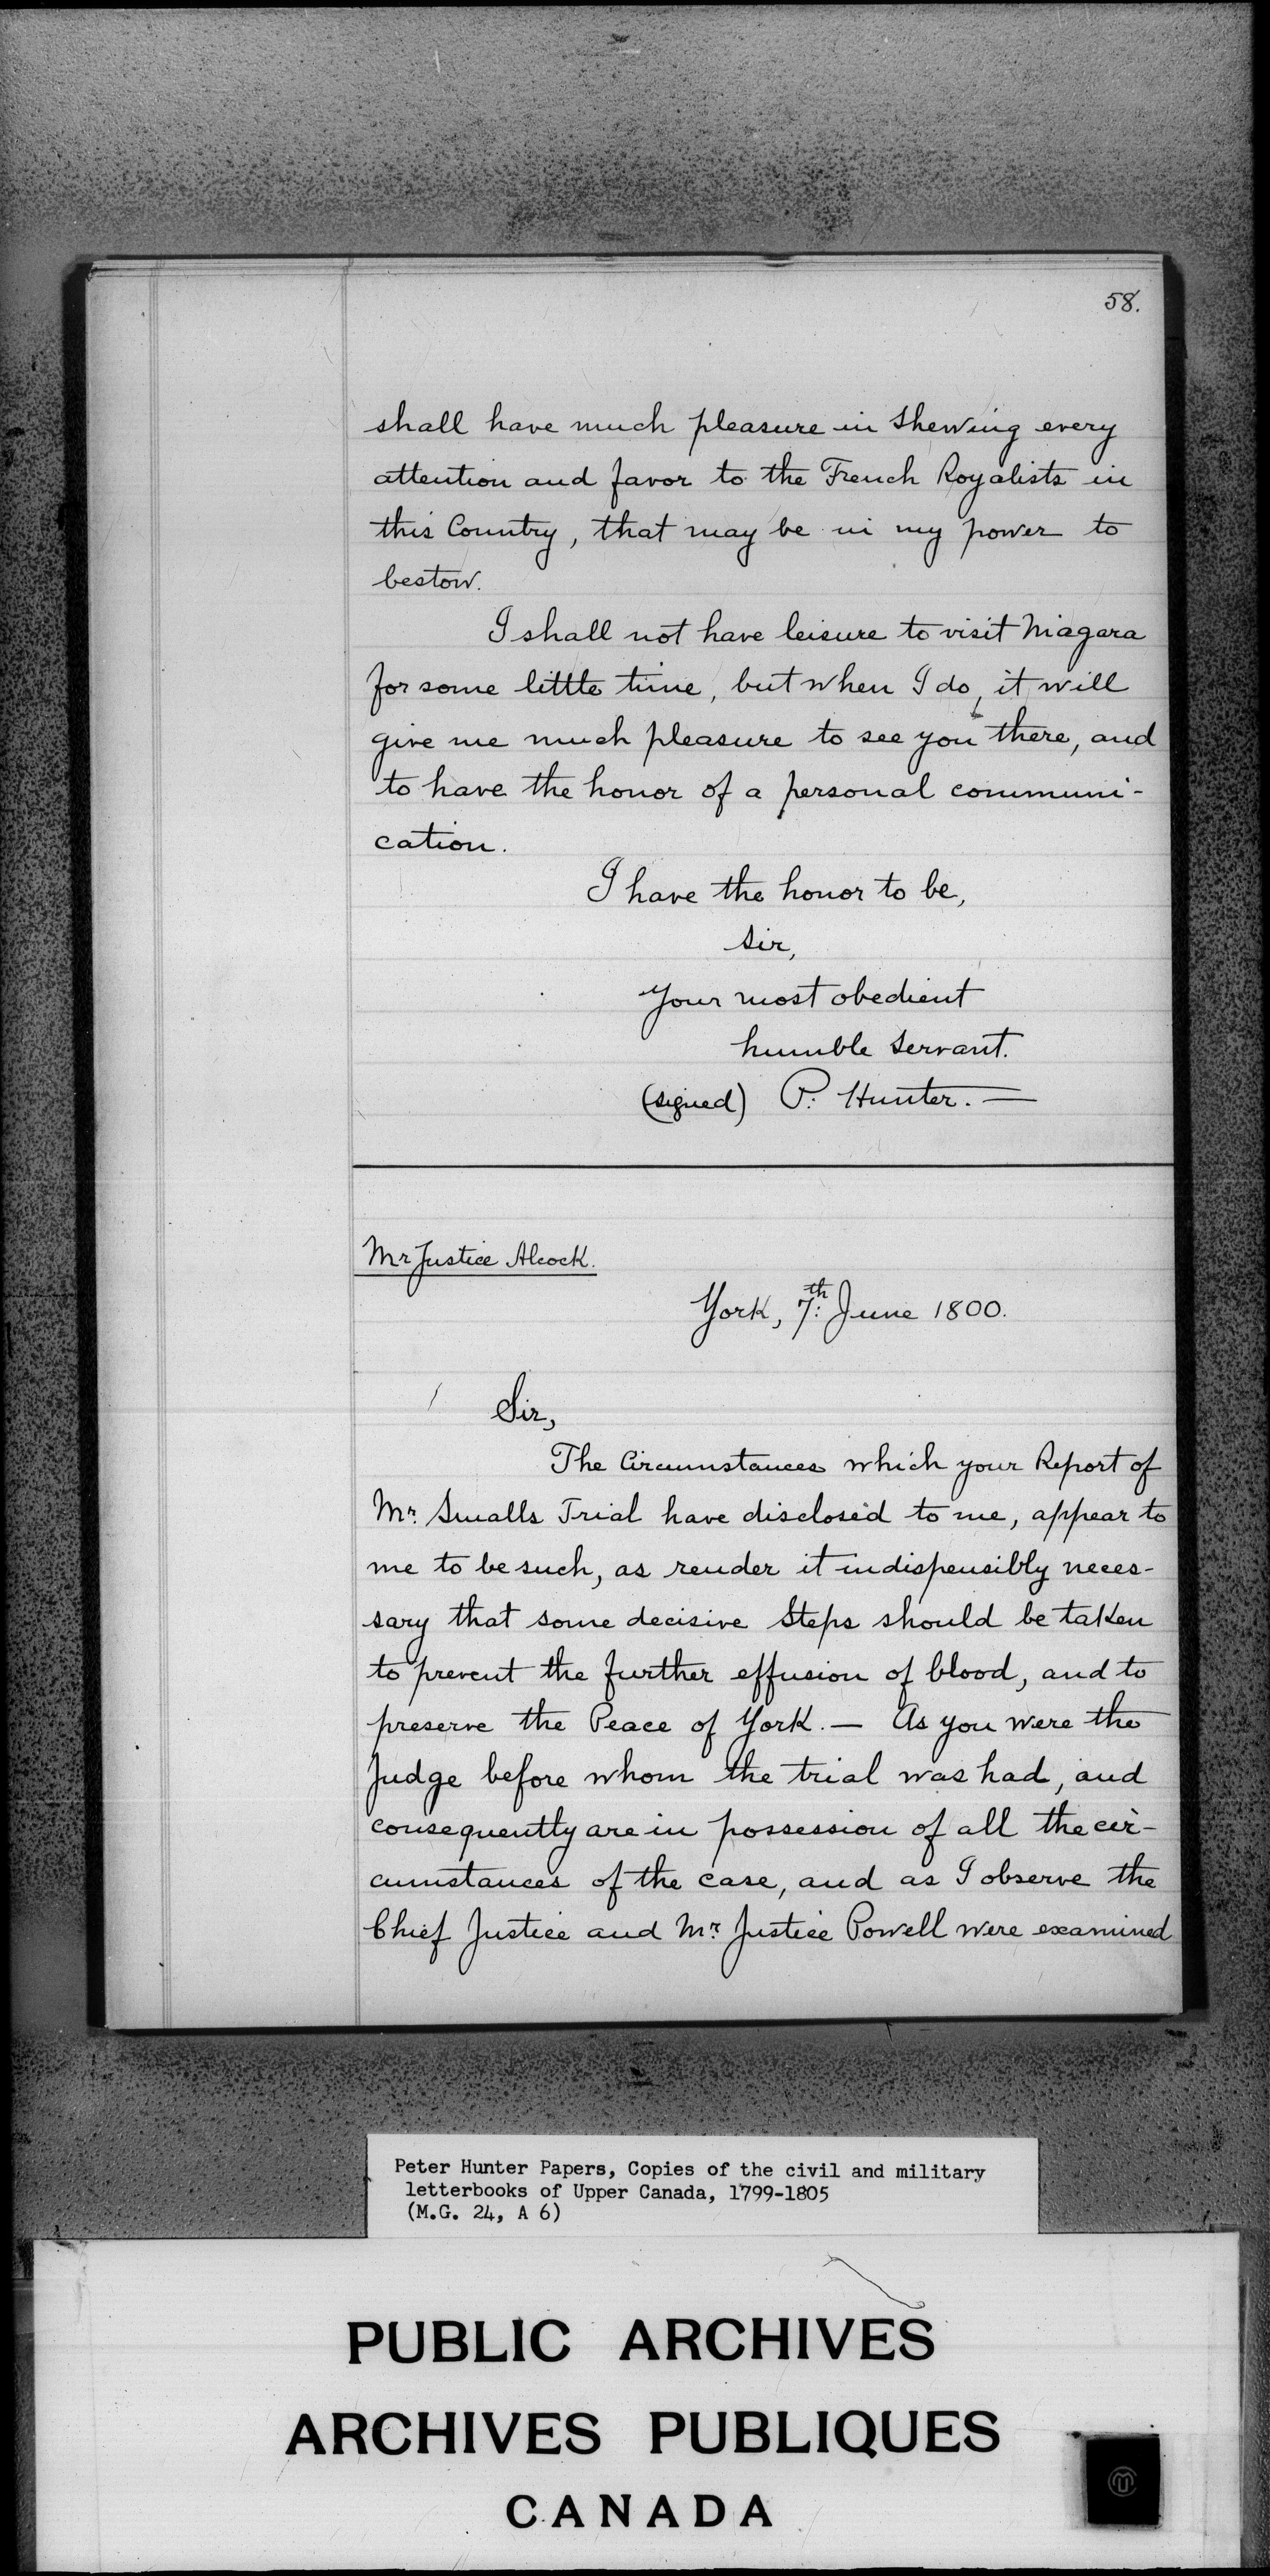 58.
shall have much pleasure in shewing every
attention and favor to the French Royalists in
this Country, that may be in my power to
bestow.
I shall not have leisure to visit Niagara
for some little time, but when I do, it will
give me much pleasure to see you there, and
to have the honor of a personal communi-
cation.
I have the honor to be,
Sir,
Your most obedient
humble Servant.
(signed) P: Hunter. —
Mr Justice Alcock.
York, 7th: June 1800.
Sir,
The Circumstances which your Report of
Mr. Smalls Trial have disclosed to me, appear to
me to be such, as render it indispensibly neces-
sary that some decisive Steps should be taken
to prevent the further effusion of blood, and to
preserve the Peace of York. — As you were the
Judge before whom the trial was had, and
consequently are in possession of all the cir-
cumstances of the case, and as I observe the
Chief Justice and Mr. Justice Powell were examined
Peter Hunter Papers, Copies of the civil and military
letterbooks of Upper Canada, 1799-1805
(M.G. 24, A 6)
PUBLIC ARCHIVES
ARCHIVES PUBLIQUES
CANADA